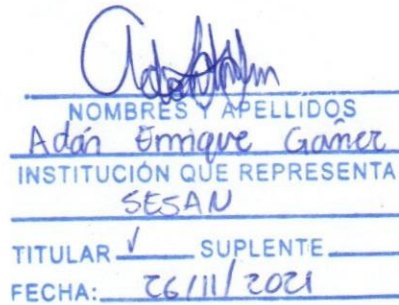 NOMBRES Y APELLIDOS
Adán Enrique Gámez
INSTITUCIÓN QUE REPRESENTA
SESAN
TITULAR ✓ SUPLENTE
FECHA: 26/11/2021